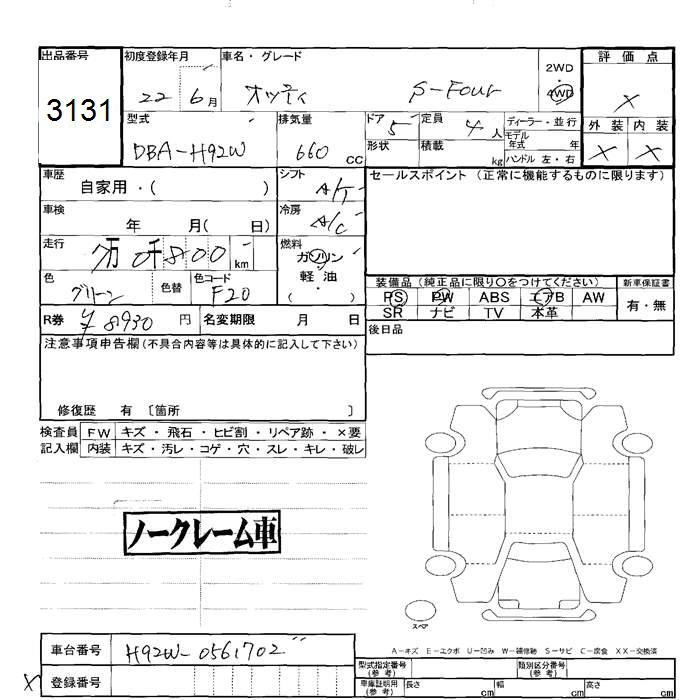 出品番号 初度登録年月 車名・グレード 評価点
3131 22 6月 オッティ S-Four 2WD・4WD X
型式 排気量 ドア 定員 ディーラー・並行 外装 内装
DBA-H92W 660 CC 5 4人 モデル年式 年 X X
形状 積載 kg ハンドル 左・右
車歴 シフト セールスポイント (正常に機能するものに限ります)
自家用・( ) A/T
車検 冷房
年 月( 日) A/C
走行 燃料
万 0千800km ガソリン
軽・油
( )
色 色替 色コード 装備品(純正品に限り○をつけてください) 新車保証書
グリーン F20 PS PW ABS エアB AW 有・無
SR ナビ TV 本革
R券 ¥8930円 名変期限 月 日 後日品
注意事項申告欄(不具合内容等は具体的に記入して下さい)
修復歴 有 〔箇所 〕
検査員 FW キズ・飛石・ヒビ割・リペア跡・×要
記入欄 内装 キズ・汚レ・コゲ・穴・スレ・キレ・破レ
ノークレーム車
スペア
A-キズ E-エクボ U-凹み W-補修跡 S-サビ C-腐食 XX-交換済
車台番号 H92W-0561702
X 登録番号
型式指定番号(参考) 類別区分番号(参考)
車庫証明用(参考) 長さ cm 幅 cm 高さ cm